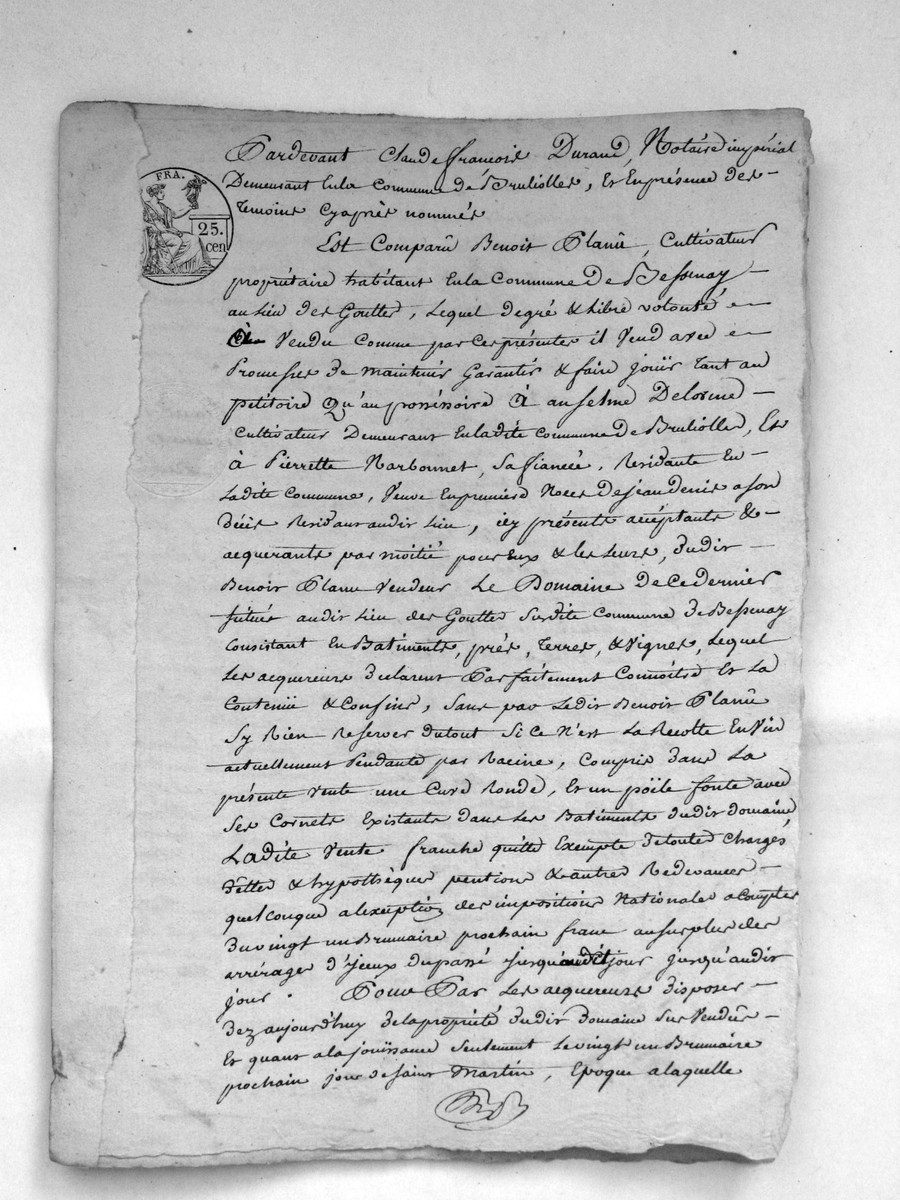 FRA.
25.
cen
Pardevant Claude françois Durand, Notaire impérial
Demeurant En la Commune de Brulioles, Et En présence des
temoins Cy après nommés
Est Comparû Benoit Planû, Cultivateur
propriétaire habitant En la Commune De Bessenay
au Lieu des Gouttes, Lequel de gré & Libre volonté
à Vendu Comme par Ces présentes il Vend avec
Promesses de maintenir Garantir & faire joüir tant au
petitoire Qu'au possessoire à anselme Delorme
Cultivateur Demeurant En ladite Commune De Brulioles, Et
à Pierrette Narbonnet, sa fiancée, Residante En
Ladite Commune, Veuve En premiere Noces De jean denis a son
décès Residant audit Lieu, icy présents acceptants &
acquerants par moitié pour Eux & les leurs, dudit
Benoit Planu Vendeur Le Domaine De Ce dernier
situés audit Lieu des Gouttes susdite Commune de Bessenay
Consistant En Batiments, prés, terres, & Vignes, Lequel
Les acquereurs declarent Parfaitement Connoitre Et La
Contenüe & Confins, Sans par Ledit Benoit Planû
sy Rien Reserver du tout si Ce N'est La Recolte En Vin
actuellement Pendante par Racine, Compris dans La
présente Vente une Cuve Ronde, Et un poële fonte avec
ses Cornets Existants dans Les Batiments dudit domaine,
Ladite Vente franche quitte Exempte de toutes Charges
dettes & hypothèques pentions & autres Redevances
quelconque a l'exeption des impositions Nationales a Compter
du vingt un Brumaire prochain franc au surplus des
arrérages d'Jceux du passé jusqu'audit jour jusqu'audit
jour. Pour Par Les acquereurs disposer
dez aujourd'huy de la propriété dudit Domaine sus Vendûs
Et quant a la joüissance seulement Le vingt un Brumaire
prochain jour de saint Martin, Epoque a laquelle